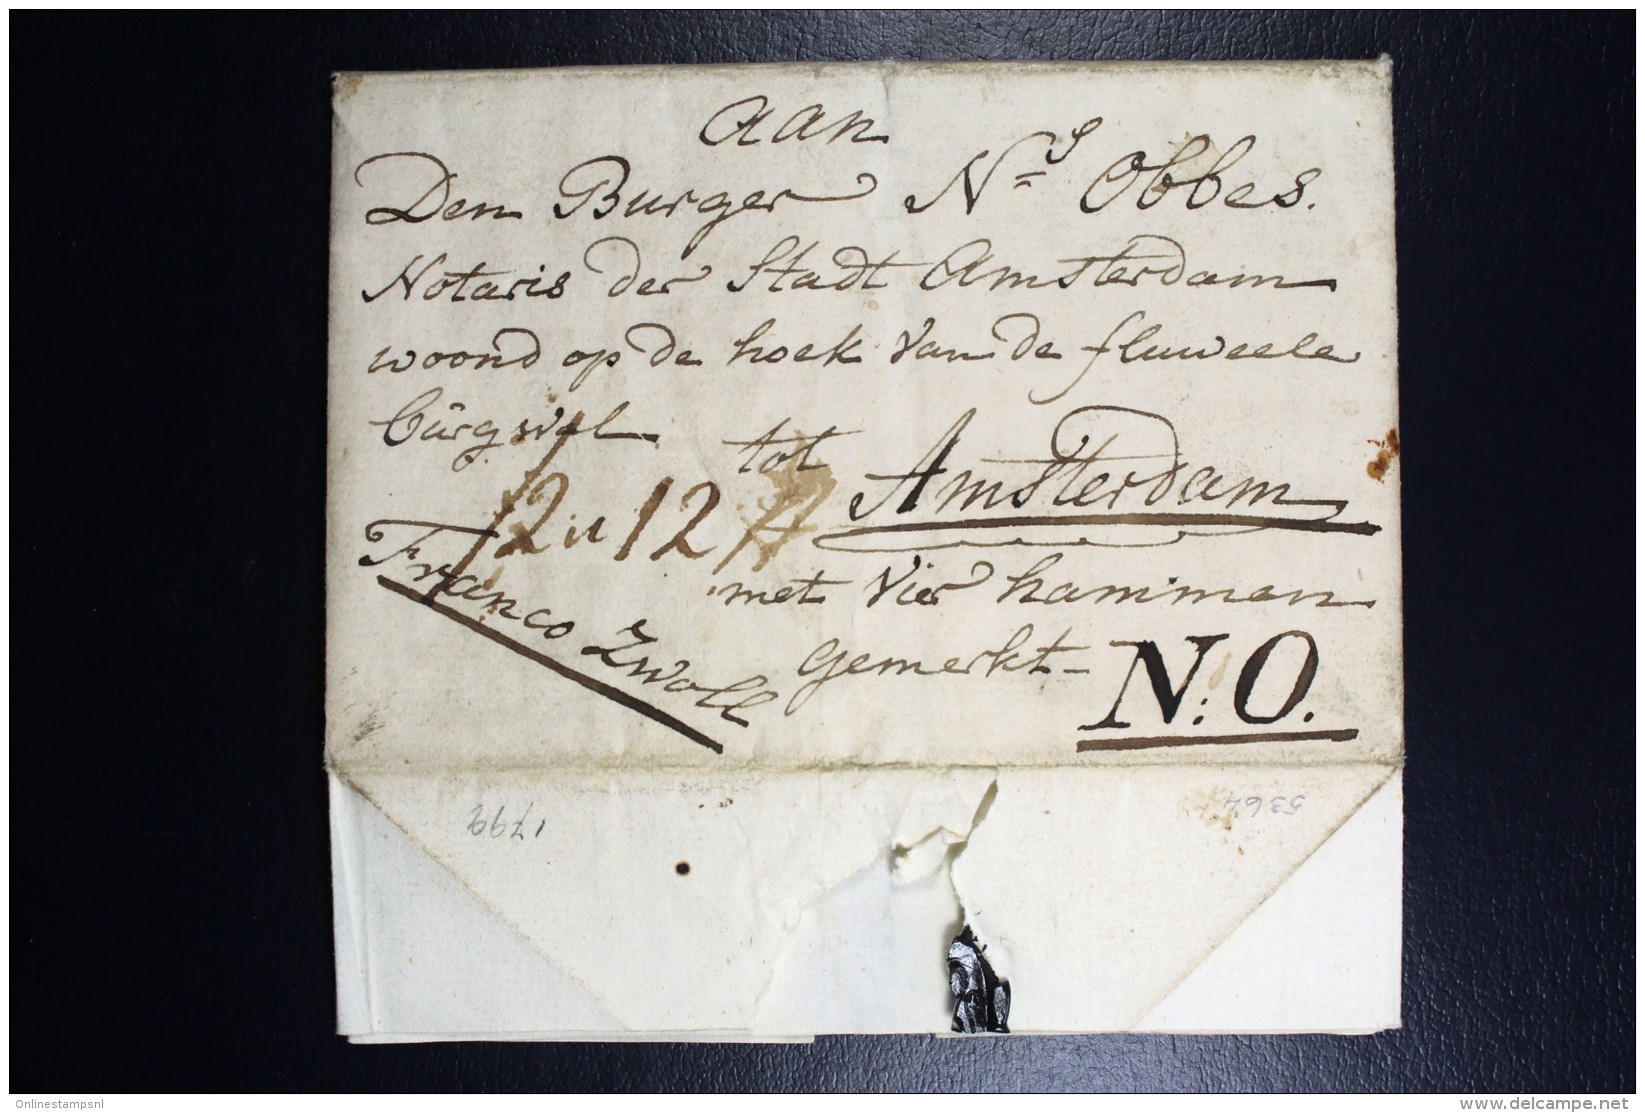 aan
Den Burger N.s Obbes.
Notaris der Stadt Amsterdam
woond op de hoek van de fluweele
burgwal tot Amsterdam
12 12
met vier hammen
gemerkt - N: O.
Franco Zwoll
1799
5364
Onlinestampsnl
www.delcampe.net